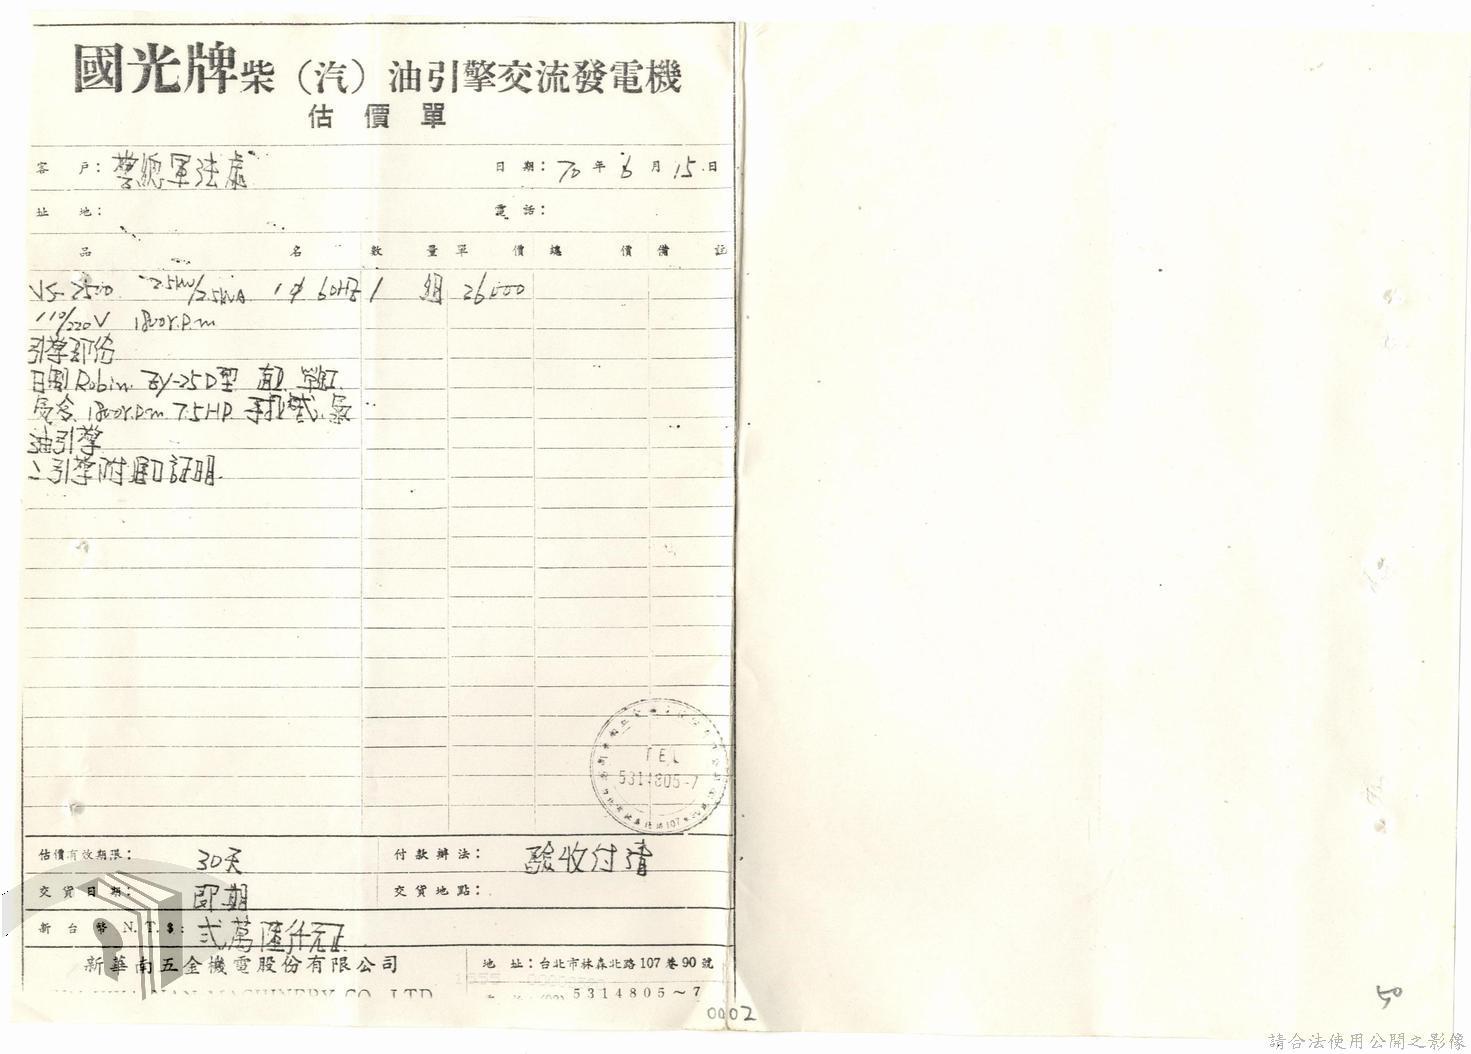 國光牌柴（汽）油引擎交流發電機
估價單
客戶：警總軍法處 日期：70年6月15日
址地： 電話：
品名 數量 單價 總價 備註
VS-2500 2.5kw/2.5kVA 1φ 60HZ 1 組 26000
110/220V 1800r.p.m
引擎部份
日製 Robin EY-25D型 直立 單缸
1800r.p.m 7.5HP 手拉式
油引擎
引擎附進口証明
TEL
5314805-7
估價有效期限：30天 付款辦法：驗收付清
交貨日期：即期 交貨地點：
新台幣 N.T.$：弍萬陸仟元正
新華南五金機電股份有限公司 地址：台北市林森北路107巷90號
MACHINERY CO. LTD 5314805～7
0002
50
請合法使用公開之影像